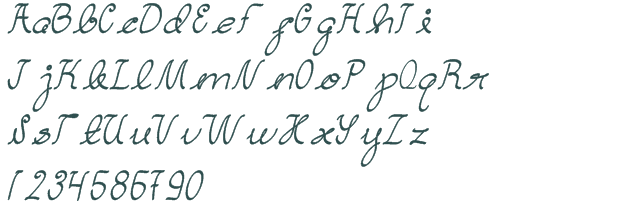 AaBbCcDdEeFfGgHhIi
JjKkLlMmNnOoPpQqRr
SsTtUuVvWwXxYyZz
1234586790